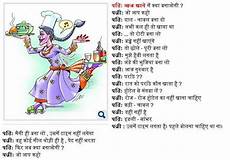 पति: आज खाने में क्या बनाओगी ?
पत्नी: जो आप कहो
पति: दाल - चावल बना दो
पत्नी: अभी कल ही तो खाया था
पति: ... तो रोटी बना लो
पत्नी: बच्चे नहीं खाएंगे
पति: तो छोले - पूरी बना लो
पत्नी: मुझे हैवी लगता है
पति: अंडे की भुर्जिया बना लो
पत्नी: आज
पति: पराठे ?
पत्नी: रात को पराठे कौन खाता है ?
पति: होटल से मंगवा लो ?
पत्नी: रोज - रोज होटल का नहीं खाना चाहिए
पति: कढ़ी - चावल ?
पत्नी: दही नहीं है
पति: इडली - सांभर
पत्नी: उसमें टाइम लगता है। पहले बोलना चाहिए था ना।
पति: मैगी ही बना लो , उसमें टाइम नहीं लगेगा
पत्नी: वह कोई मील थोड़ी ही है , पेट नहीं भरता
पति: फिर अब क्या बनाओगी ?
पत्नी: जो आप कहो